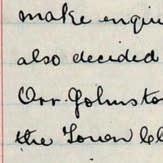 make enqui
also decided
Orr. Johnsto
the Town Cl